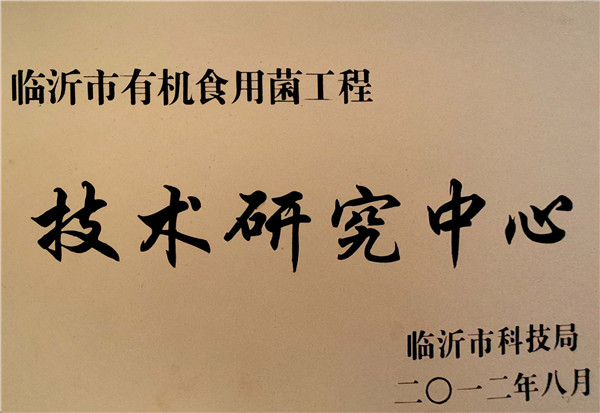 临沂市有机食用菌工程
技术研究中心
临沂市科技局
二〇一二年八月